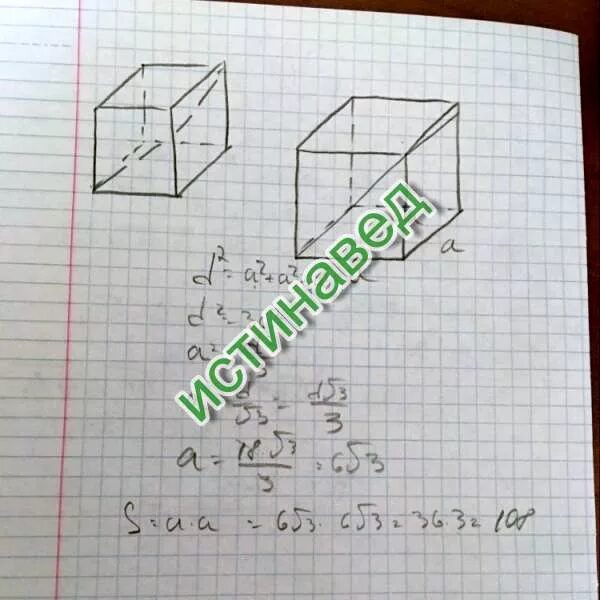 a
d²=a²+a²
d²=
a²=
d/√3 = d√3/3
a = 18·√3/3 = 6√3
S=a·a = 6√3· 6√3= 36·3= 108
истинавед